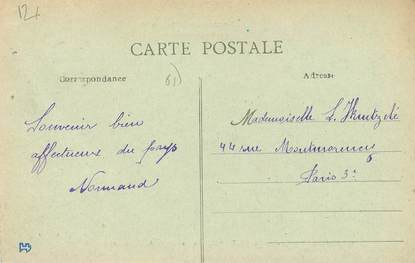 124
CARTE POSTALE
Correspondance
61)
Adresse
Souvenir bien
affectueux du pays
Normand
Mademoiselle L.
44 rue Montmorency
Paris 3e